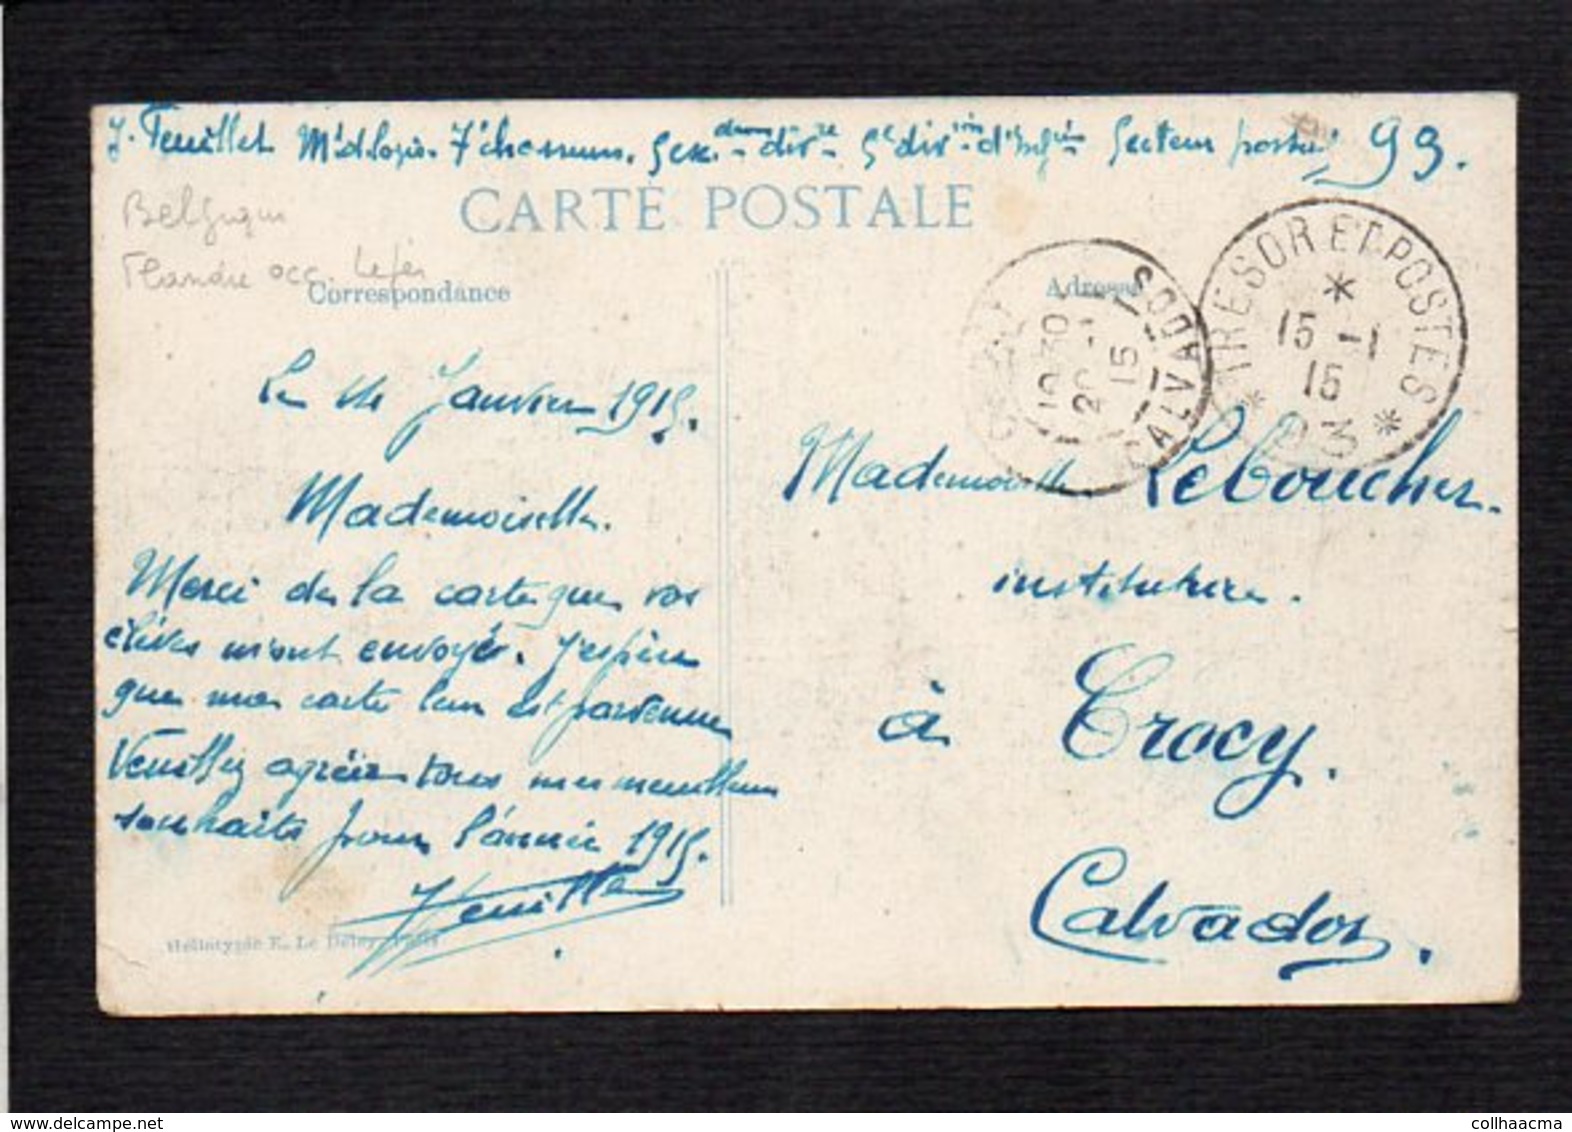 J. Feuillet M'd'logis. 7e chasseurs. div. 5e div. d'Inf. Secteur postal 93.
CARTE POSTALE
Belgique
Flandre occ.
Correspondance
Adresse
TRESOR ET POSTES
15 -1
15
* 93 *
CALVADOS
20 -1
15
Le 14 Janvier 1915.
Mademoiselle.
Merci de la carte que vos
élèves m'ont envoyé. J'espère
que ma carte leur est parvenue
Veuillez agréer tous mes meilleurs
souhaits pour l'année 1915.
JFeuillet
Héliotypie E. Le Deley, Paris
Mademoiselle Leboucher.
institutrice.
à Crocy.
Calvados.
collhaacma